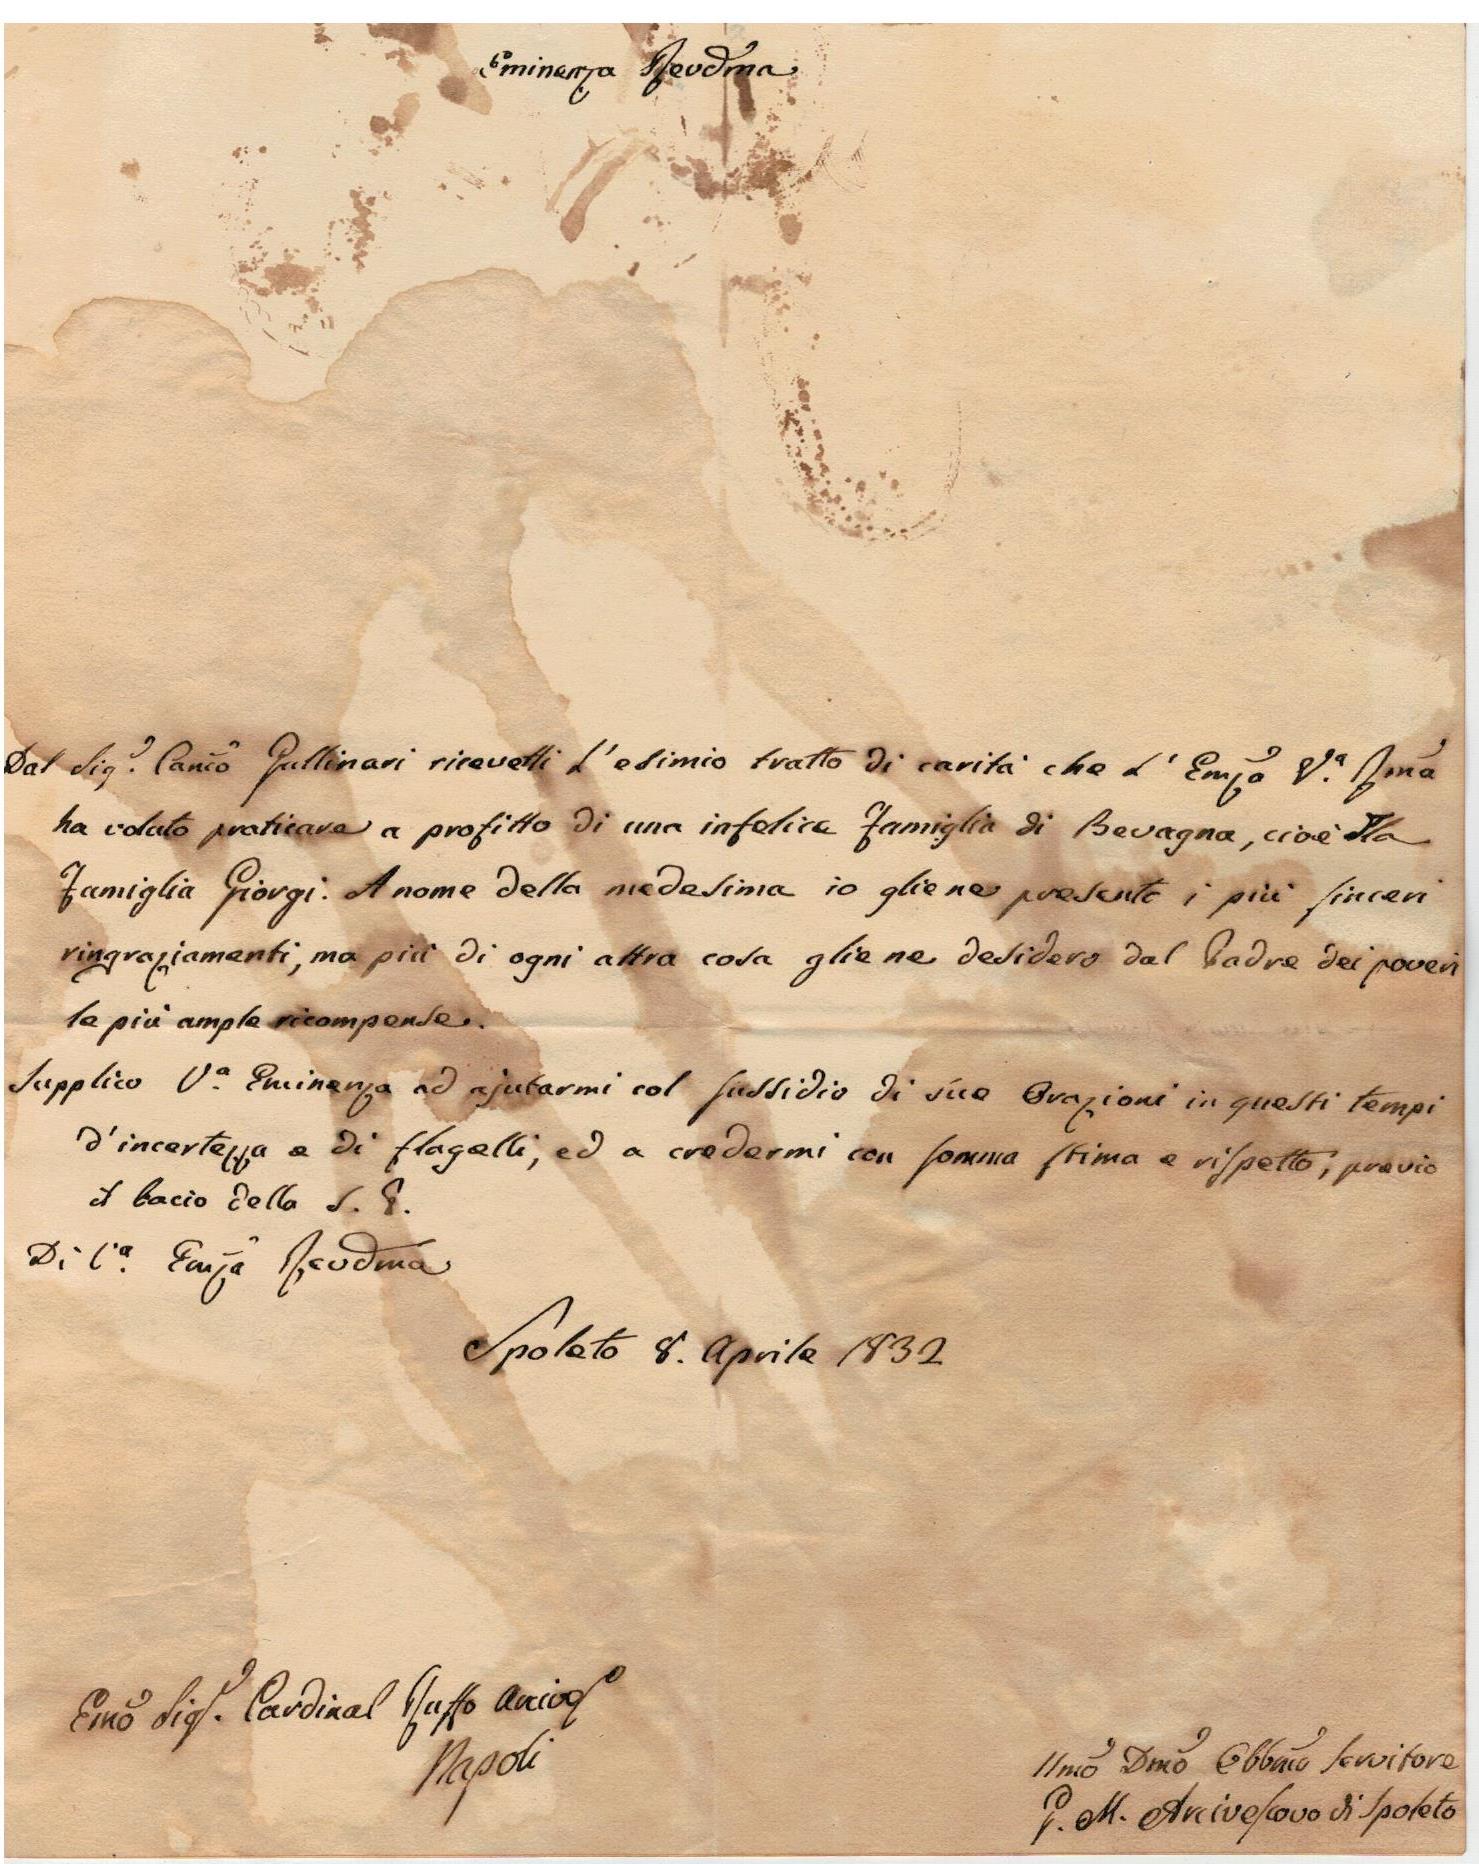 Eminenza Reudma
Dal Sigr. Canco Gullinari ricevetti l'esimio tratto di carità che l'Emza Va. Rma
ha voluto praticare a profitto di una infelice famiglia di Bevagna, cioè dlla
Famiglia Giorgi. A nome della medesima io gliene presento i più sinceri
ringraziamenti, ma più di ogni altra cosa gliene desidero dal Padre dei poveri
le più ample ricompense.
Supplico Va. Eminenza ad ajutarmi col sussidio di sue Orazioni in questi tempi
d'incertezza e di flagelli, ed a credermi con somma stima e rispetto, previo
il bacio della S. P.
Di Va. Emza Reudma
Spoleto 8. Aprile 1832
Emo Sigr. Cardinal Ruffo Arcivo
Napoli
Umo Dmo Obbmo Servitore
G. M. Arcivescovo di Spoleto